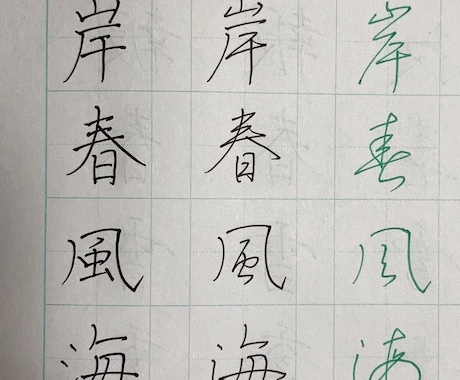 岸 岸 岸
春 春 春
風 風 風
海 海 海